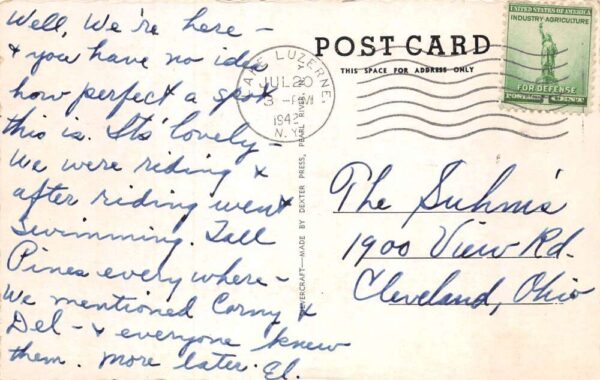 Well, We're here -
& you have no idea
how perfect a spot
this is. Its' lovely -
We were riding &
after riding went
Swimming. Tall
Pines everywhere -
We mentioned Corny &
Del - & everyone knew
them. More later. El.
POST CARD
THIS SPACE FOR ADDRESS ONLY
LAKE LUZERNE,
JUL 20
3 - PM
1942
N.Y.
UNITED STATES OF AMERICA
INDUSTRY AGRICULTURE
FOR DEFENSE
POSTAGE 1 CENT
The Suhm's
1900 View Rd.
Cleveland, Ohio
MADE BY DEXTER PRESS, PEARL RIVER, N.Y.